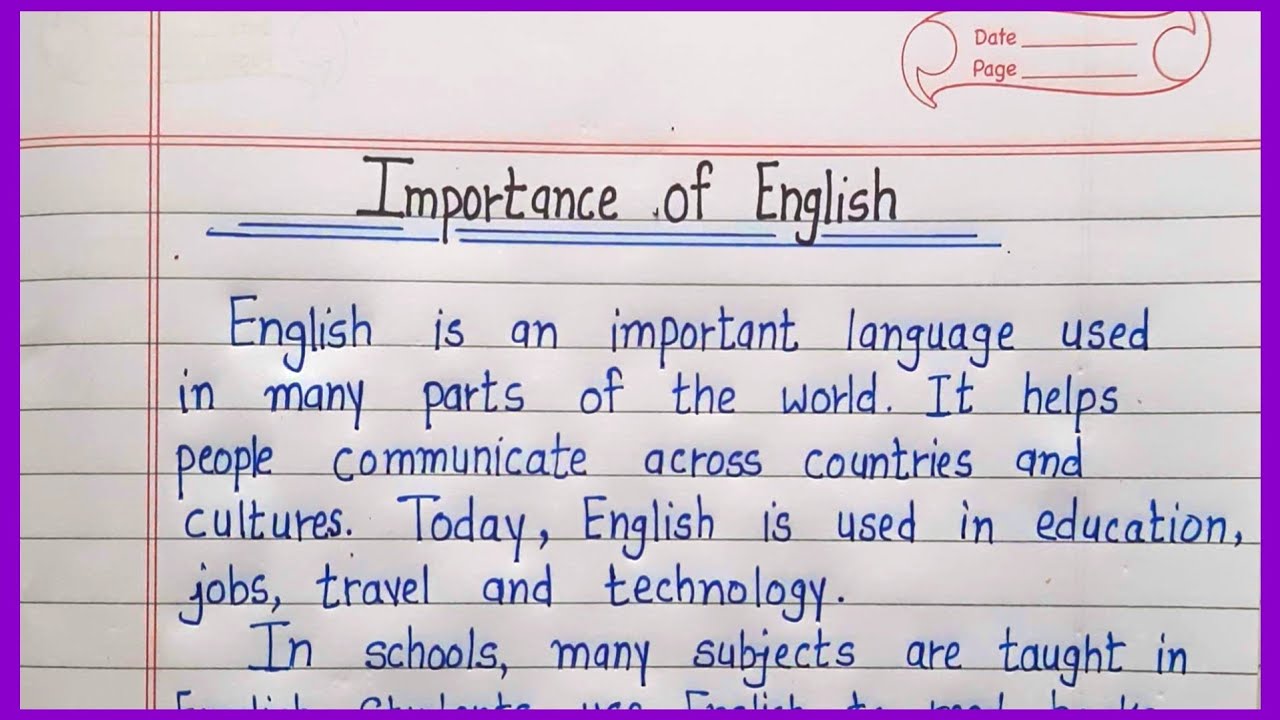 Date
Page
Importance of English
English is an important language used
in many parts of the world. It helps
people communicate across countries and
cultures. Today, English is used in education,
jobs, travel and technology.
In schools, many subjects are taught in
English students use English to read books